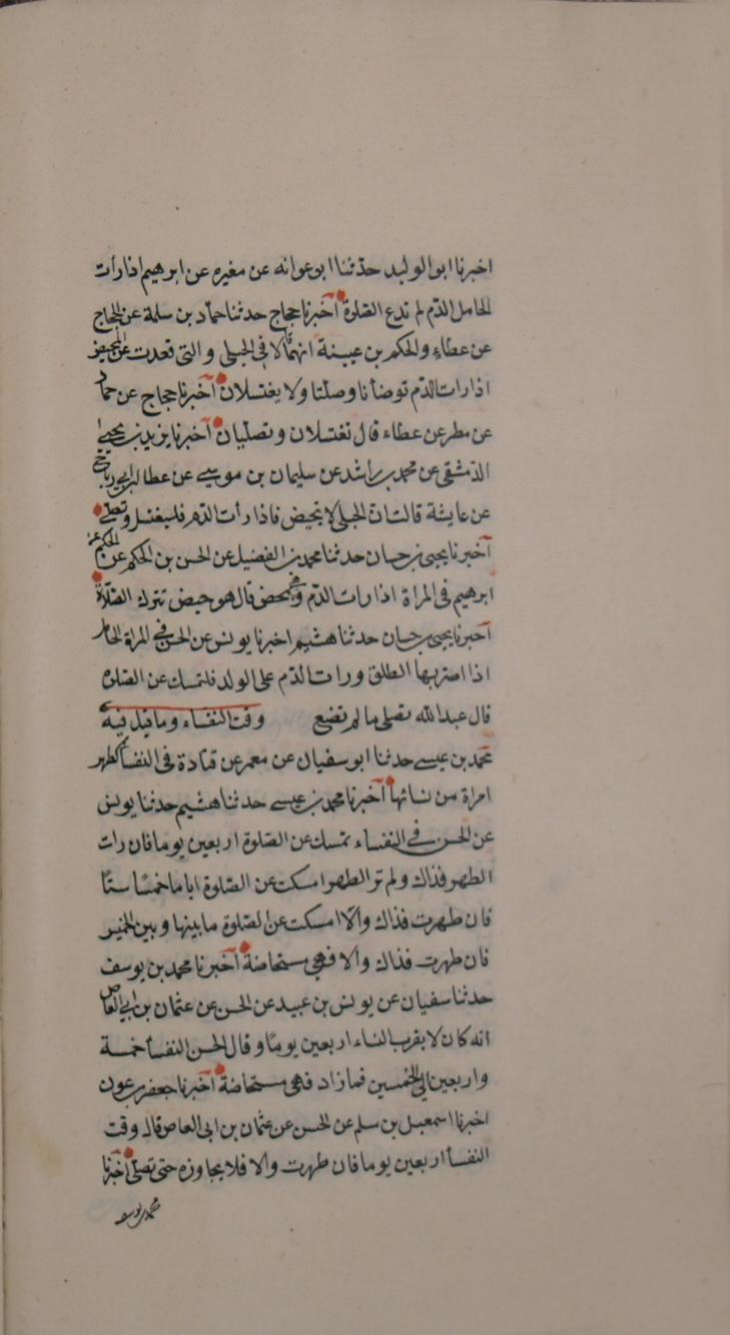 اخبرنا ابو الوليد حدثنا ابو عوانه عن مغيره عن ابرهيم اذا رأت
الحامل الدّم لم تدع الصّلوة اخبرنا حجاج حدثنا حمّاد بن سلمة عن الحجاج
عن عطاء والحكم بن عيينة انهما قالا فى الحبلى والتى قعدت عن المحيض
اذا رات الدّم توضأنا وصلّتا ولا يغتسلان اخبرنا حجاج عن حماد
عن مطر عن عطاء قال تغتسلان وتصلّيان اخبرنا يزيد بن يحيى
الدّمشقى عن محمد بن راشد عن سليمان بن موسى عن عطا بن ابى رباح
عن عايشة قالت ان الحبلى لا تحيض فاذا رأت الدّم فلتغتسل وتصلى
اخبرنا يحيى بن حسان حدثنا محمد بن الفضيل عن الحسن بن الحكم عن الحكم عن
ابرهيم فى المراة اذا رات الدّم وهى تمخض قال هو حيض تترك الصّلاة
اخبرنا يحيى بن حسان حدثنا هشيم اخبرنا يونس عن الحسن فى المراة الحامل
اذا ضربها الطلق ورات الدّم على الولد فلتمسك عن الصّلوة
قال عبد الله تصلى ما لم تضع وقت النفساء وما قيل فيه
محمد بن عيسى حدثنا ابو سفيان عن معمر عن قتادة فى النفسأ كطهر
امراة من نسائها اخبرنا محمد بن عيسى حدثنا هشيم حدثنا يونس
عن الحسن فى النفساء تمسك عن الصّلوة اربعين يوما فان رات
الطهر فذاك ولم تر الطهر امسكت عن الصّلوة اياما خمسًا ستًا
فان طهرت فذاك والّا امسكت عن الصّلوة ما بينها وبين الخمسين
فان طهرت فذاك والا فهى مستحاضة اخبرنا محمد بن يوسف
حدثنا سفيان عن يونس بن عبيد عن الحسن عن عثمان بن ابى العاص
انه كان لا يقرب النساء اربعين يومًا وقال الحسن النفسأ خمسة
واربعين الى الخمسين فما زاد فهى مستحاضة اخبرنا جعفر بن عون
اخبرنا اسمعيل بن سلم عن الحسن عن عثمان بن ابى العاص قال وقت
النفسأ اربعين يوما فان طهرت والا فلا يجاوزه حتى تصلى اخبرنا
محمد بن يوسف